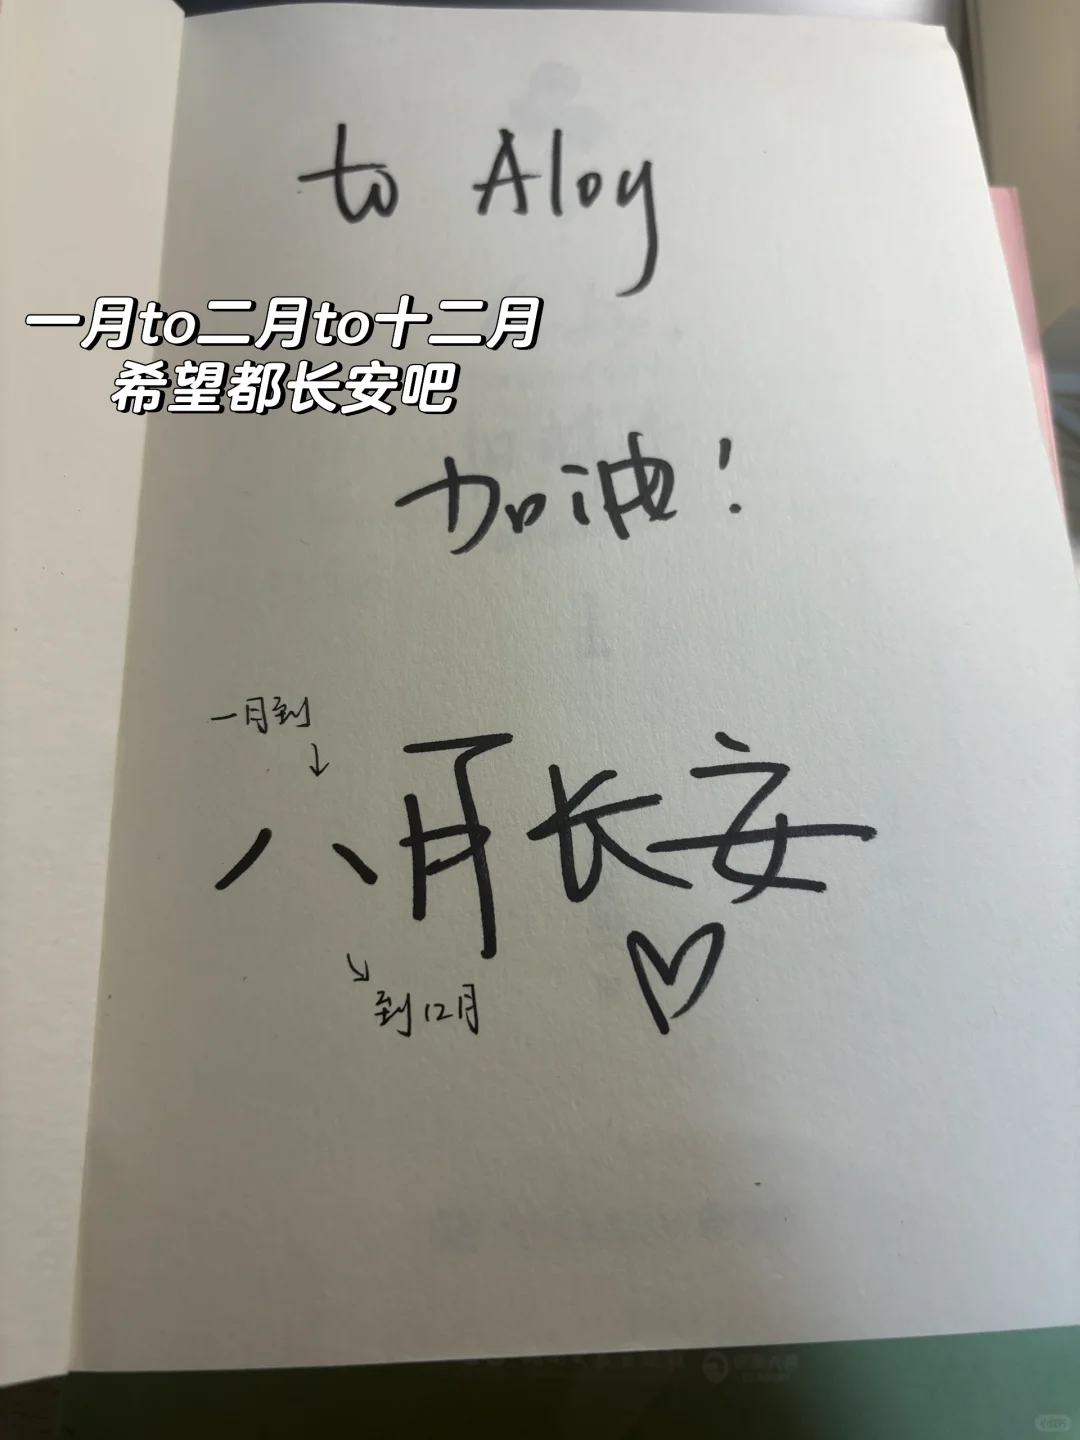 to Aloy
一月to二月to十二月
希望都长安吧
加油！
一月到
↓
八月长安
♡
↘
到12月